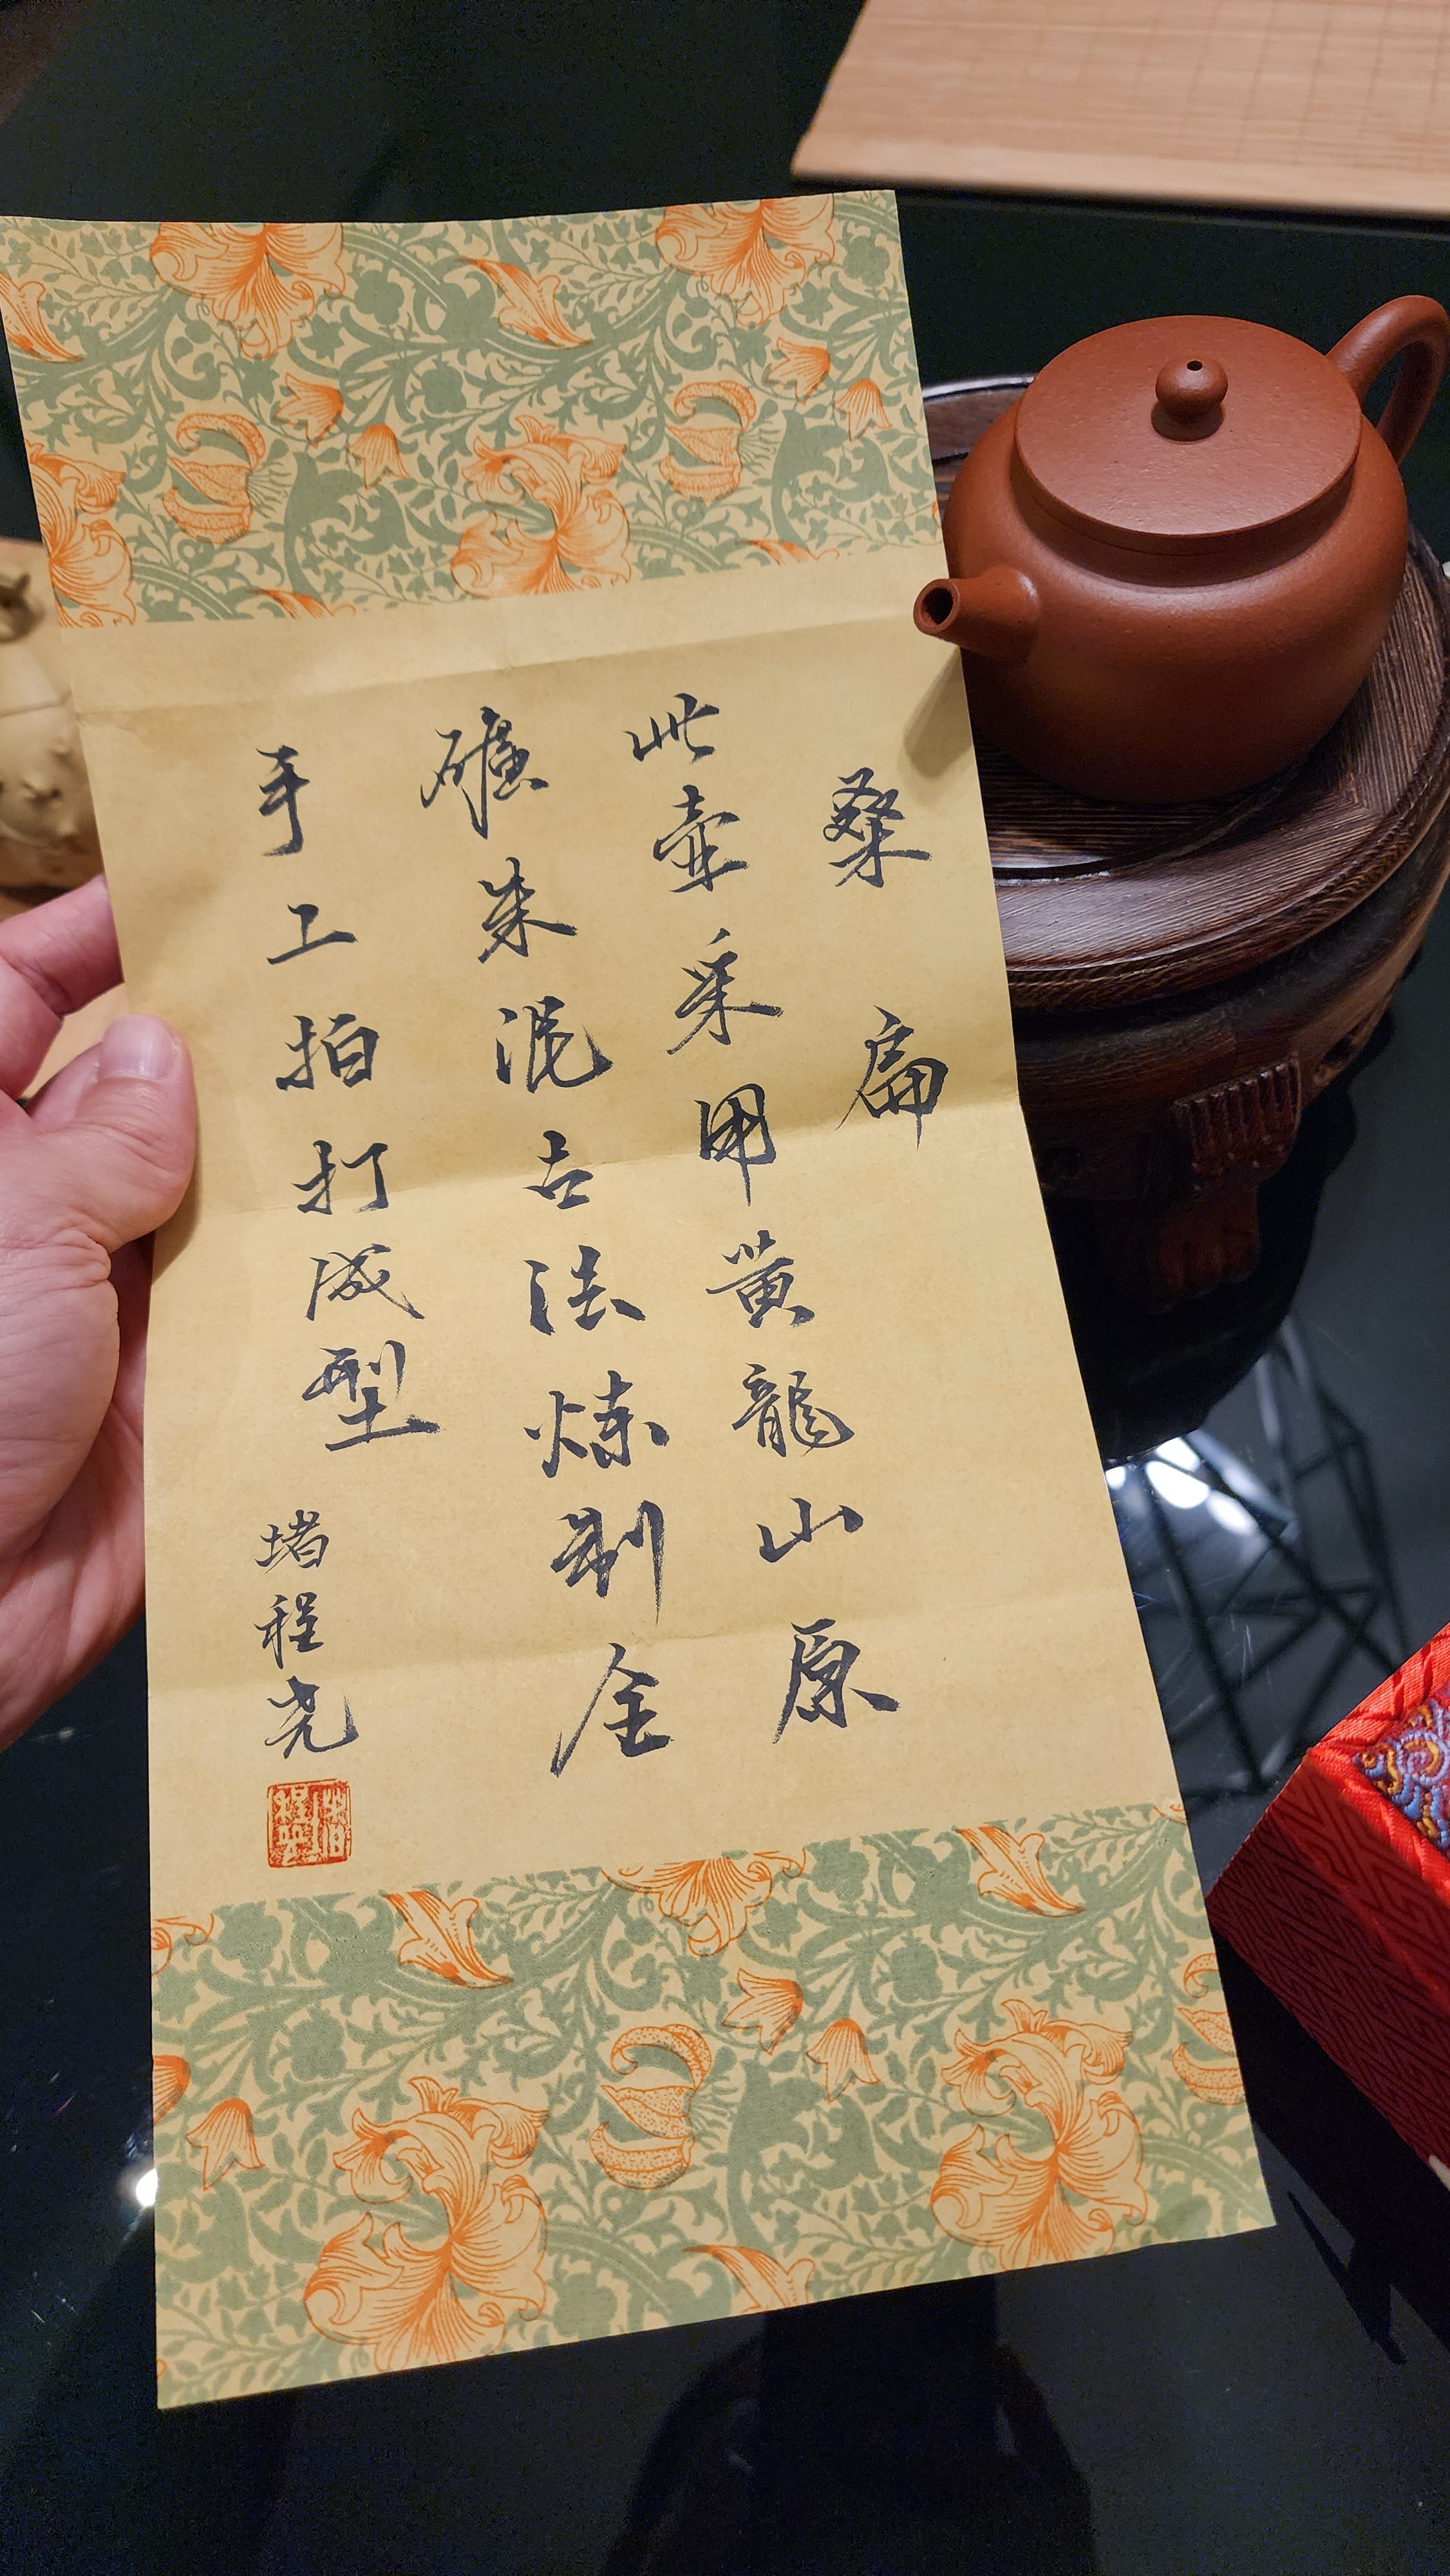 桑扁
此壶采用黄龍山原
礦朱泥古法炼制全
手工拍打成型
堵程尧